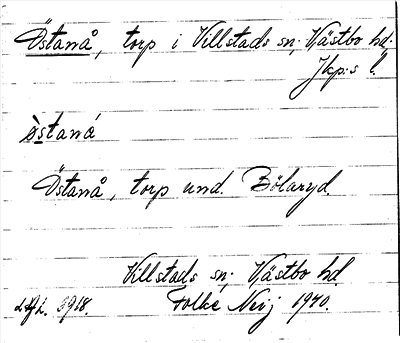 Östanå, torp i Villstads sn; Västbo hd.
Jkp:s l.
östaná
Östanå, torp und. Bölaryd.
Villstads sn; Västbo hd.
Folke Neij 1940.
5968.